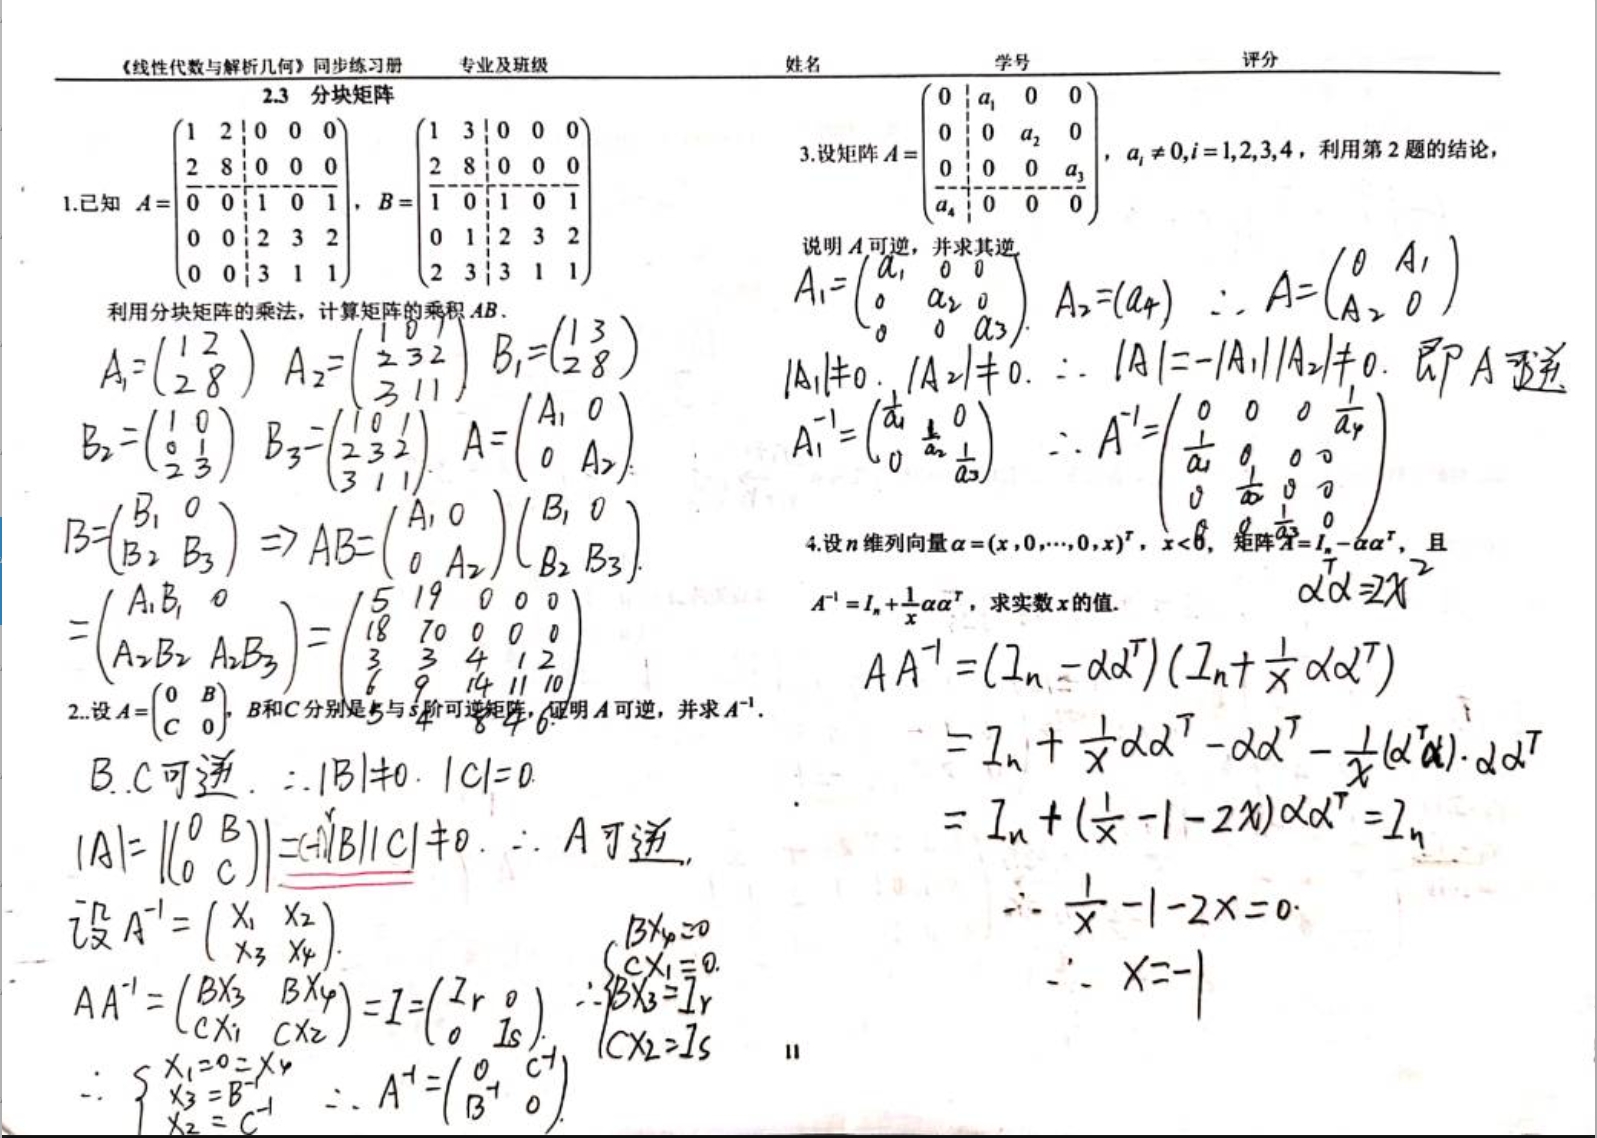 《线性代数与解析几何》同步练习册 专业及班级 姓名 学号 评分
2.3 分块矩阵
1.已知 A=
(1 2 0 0 0
2 8 0 0 0
0 0 1 0 1
0 0 2 3 2
0 0 3 1 1)
, B=
(1 3 0 0 0
2 8 0 0 0
1 0 1 0 1
0 1 2 3 2
2 3 3 1 1)
利用分块矩阵的乘法,计算矩阵的乘积 AB.
A₁=(1 2; 2 8) A₂=(1 0 1; 2 3 2; 3 1 1) B₁=(1 3; 2 8)
B₂=(1 0; 0 1; 2 3) B₃=(1 0 1; 2 3 2; 3 1 1) A=(A₁ 0; 0 A₂)
B=(B₁ 0; B₂ B₃) => AB=(A₁ 0; 0 A₂)(B₁ 0; B₂ B₃)
=(A₁B₁ 0; A₂B₂ A₂B₃)=
(5 19 0 0 0
18 70 0 0 0
3 3 4 1 2
6 9 14 11 10
5 4 8 4 6)
2..设 A=(0 B; C 0), B和C分别是r与s阶可逆矩阵,证明 A 可逆,并求 A⁻¹.
B..C可逆. ∴|B|≠0. |C|=0.
|A|=|(0 B; 0 C)|=(-1)ʳ|B||C|≠0. ∴ A 可逆.
设 A⁻¹=(X₁ X₂; X₃ X₄).
AA⁻¹=(BX₃ BX₄; CX₁ CX₂)=I=(Ir 0; 0 Is). ∴
BX₄=0
CX₁=0.
BX₃=Ir
CX₂=Is
∴ { X₁=0=X₄
X₃=B⁻¹
X₂=C⁻¹
∴ A⁻¹=(0 C⁻¹; B⁻¹ 0).
3.设矩阵 A=
(0 a₁ 0 0
0 0 a₂ 0
0 0 0 a₃
a₄ 0 0 0)
, aᵢ≠0,i=1,2,3,4, 利用第 2 题的结论,
说明 A 可逆,并求其逆.
A₁=(a₁ 0 0; 0 a₂ 0; 0 0 a₃). A₂=(a₄) ∴ A=(0 A₁; A₂ 0)
|A₁|≠0. |A₂|≠0. ∴ |A|=-|A₁||A₂|≠0. 即 A 可逆
A₁⁻¹=(1/a₁ 0; 1/a₂; 0 1/a₃) ∴ A⁻¹=
(0 0 0 1/a₄
1/a₁ 0 0 0
0 1/a₂ 0 0
0 0 1/a₃ 0)
4.设 n 维列向量 α=(x,0,⋯,0,x)ᵀ, x<0, 矩阵 A=Iₙ-ααᵀ, 且
αᵀα=2x²
A⁻¹=Iₙ+1/x ααᵀ, 求实数 x 的值.
AA⁻¹=(Iₙ-ααᵀ)(Iₙ+1/x ααᵀ)
=Iₙ+1/x ααᵀ-ααᵀ-1/x(αᵀα)·ααᵀ
=Iₙ+(1/x-1-2x)ααᵀ=Iₙ
∴ 1/x-1-2x=0.
∴ x=-1
11